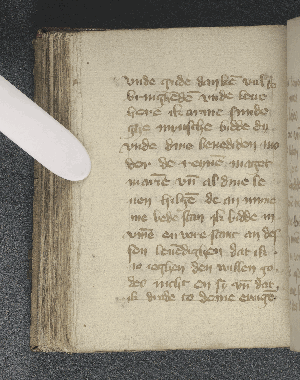 vnde gude danken vul
bringhede vnde leue
here ik arme sundi
ghe mynsche bidde di
vnde dine benediden mo
der de reine maget
marie vn al dine le
uen hilge de an mine
me bede stan ik bidde
vme en vore stant an des
sen leuedighen dat ik
io ieghen den willen go
des nicht en sy vn dat
ik dede to deme ewige